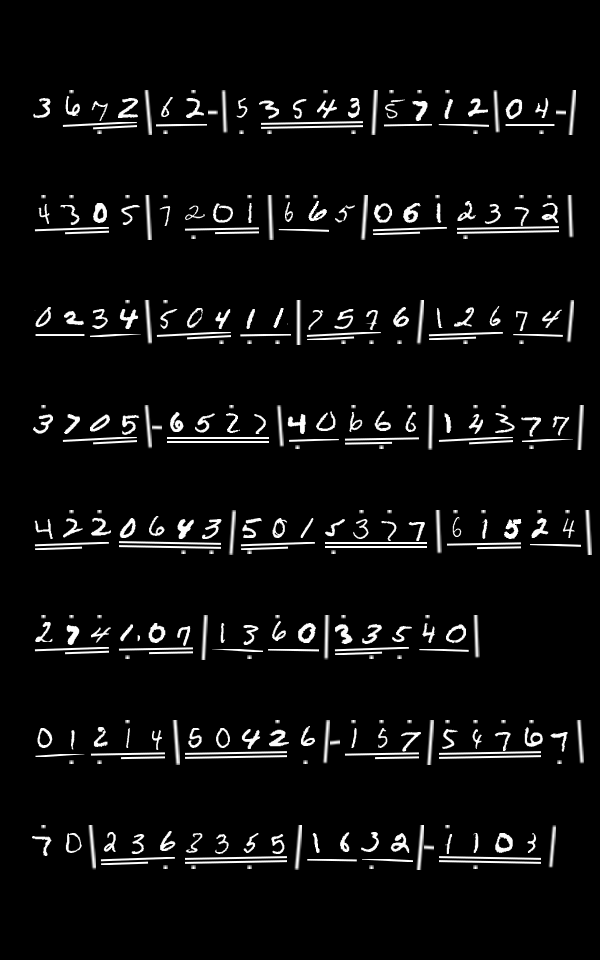 3 6 7 2 | 6 2 - | 5 3 5 4 3 | 5 7 1 2 | 0 4 - |
4 3 0 5 | 7 2 0 1 | 6 6 5 | 0 6 1 2 3 7 2 |
0 2 3 4 | 5 0 4 1 1 | 7 5 7 6 | 1 2 6 7 4 |
3 7 0 5 | - 6 5 2 7 | 4 0 6 6 6 | 1 4 3 7 7 |
4 2 2 0 6 4 3 | 5 0 1 5 3 7 7 | 6 1 5 2 4 |
2 7 4 1 . 0 7 | 1 3 6 0 | 3 3 5 4 0 |
0 1 2 1 4 | 5 0 4 2 6 | - 1 5 7 | 5 4 7 6 7 |
7 0 | 2 3 6 3 3 5 5 | 1 6 3 2 | - 1 1 0 3 |